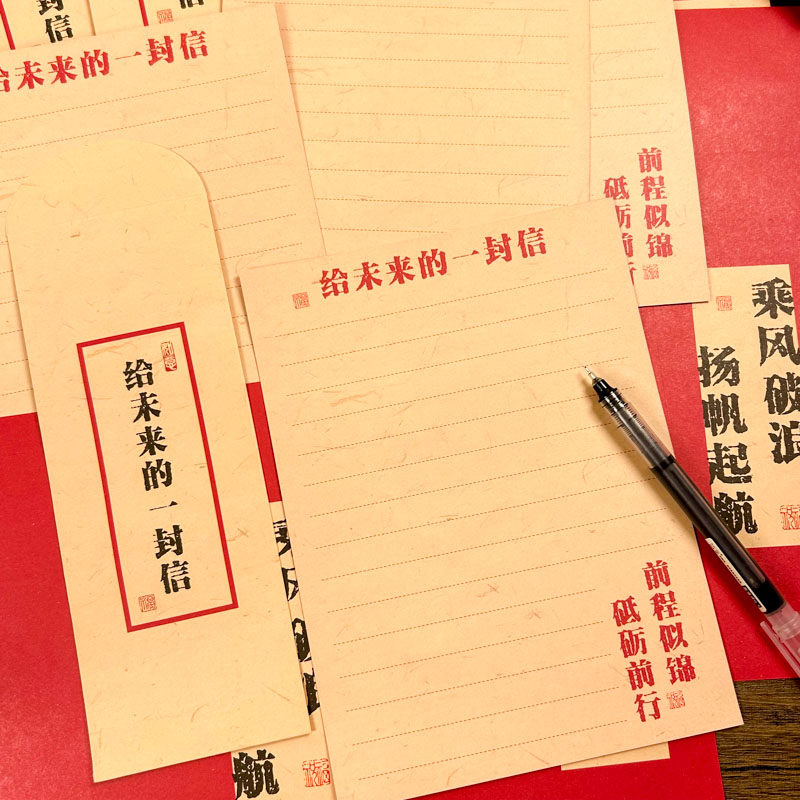 给未来的一封信
给未来的一封信
前程似锦
砥砺前行
给未来的一封信
前程似锦
砥砺前行
乘风破浪
扬帆起航
乘风
航
封信